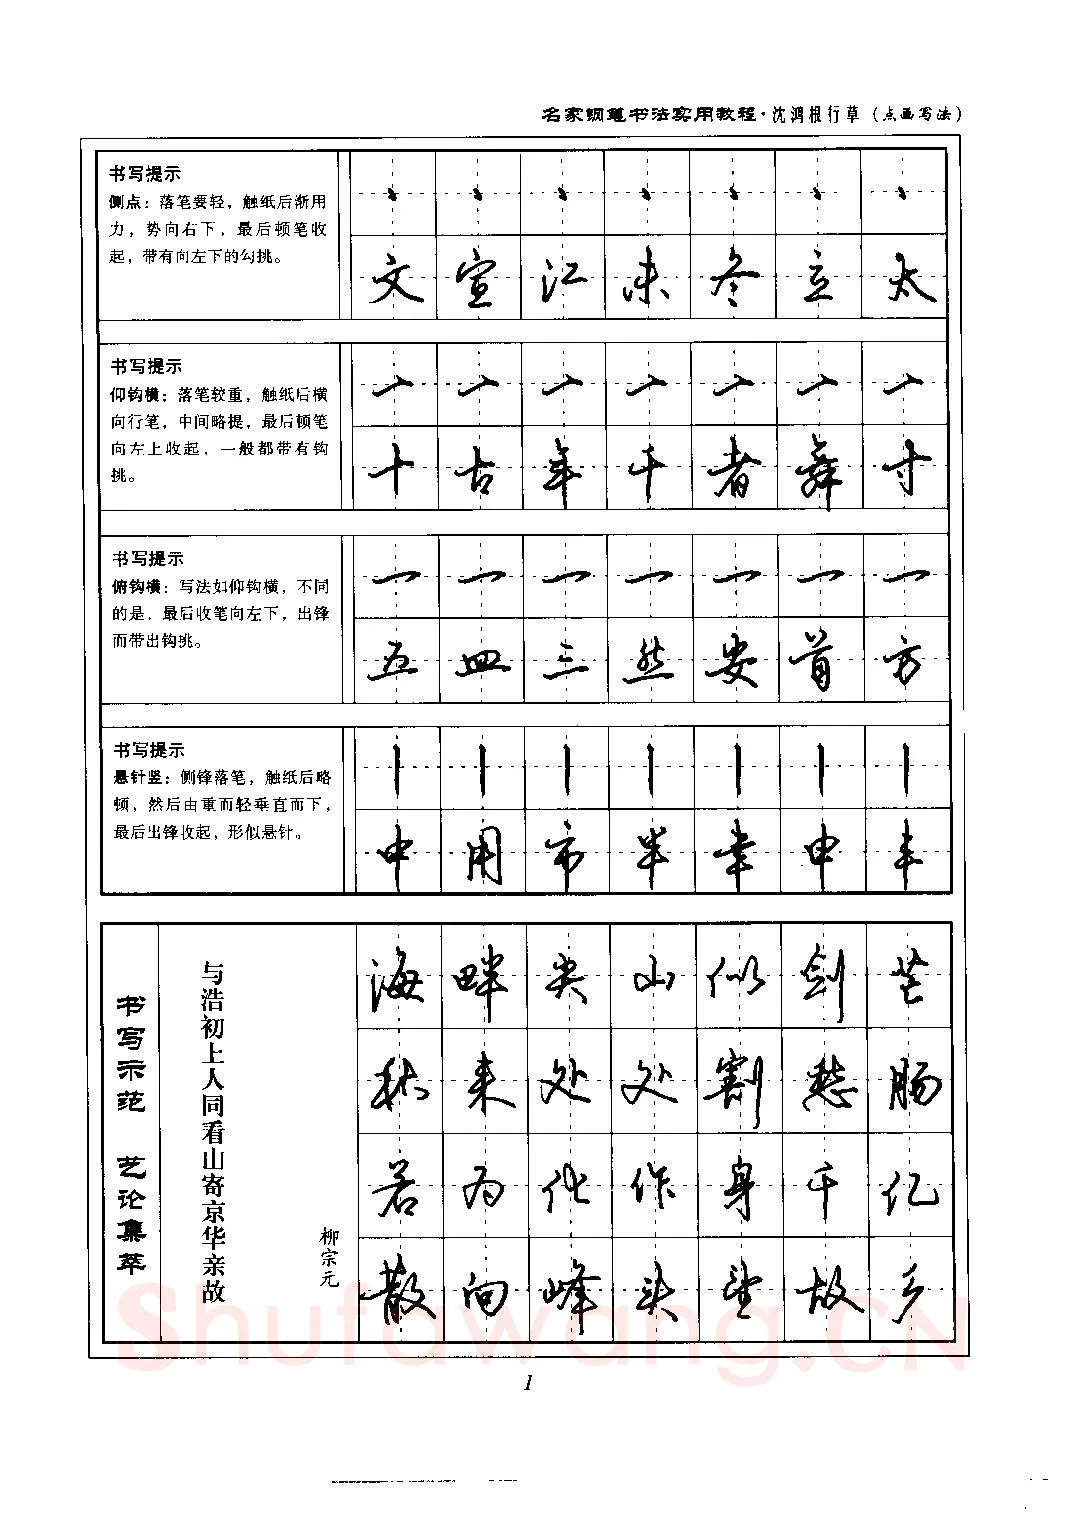 名家钢笔书法实用教程·沈鸿根行草（点画写法）
书写提示
侧点：落笔要轻，触纸后渐用
力，势向右下，最后顿笔收
起，带有向左下的勾挑。
文宣江未冬立太
书写提示
仰钩横：落笔较重，触纸后横
向行笔，中间略提，最后顿笔
向左上收起，一般都带有钩
挑。
十古年千者舞寸
书写提示
俯钩横：写法如仰钩横，不同
的是，最后收笔向左下，出锋
而带出钩挑。
五皿三然安首方
书写提示
悬针竖：侧锋落笔，触纸后略
顿，然后由重而轻垂直而下，
最后出锋收起，形似悬针。
中用市半幸申丰
书写示范 艺论集萃
与浩初上人同看山寄京华亲故
柳宗元
海畔尖山似剑芒
秋来处处割愁肠
若为化作身千亿
散向峰头望故乡
Shufawang.CN
1